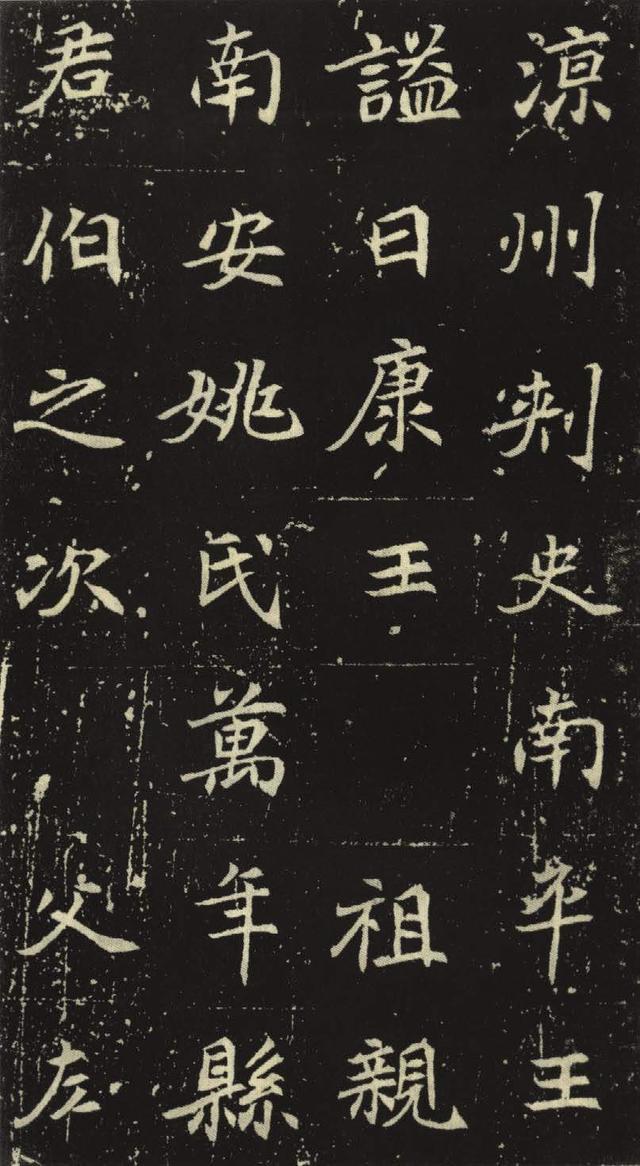 涼州刾史南平王
謚曰康王 祖親
南安姚氏萬年縣
君伯之次 父左